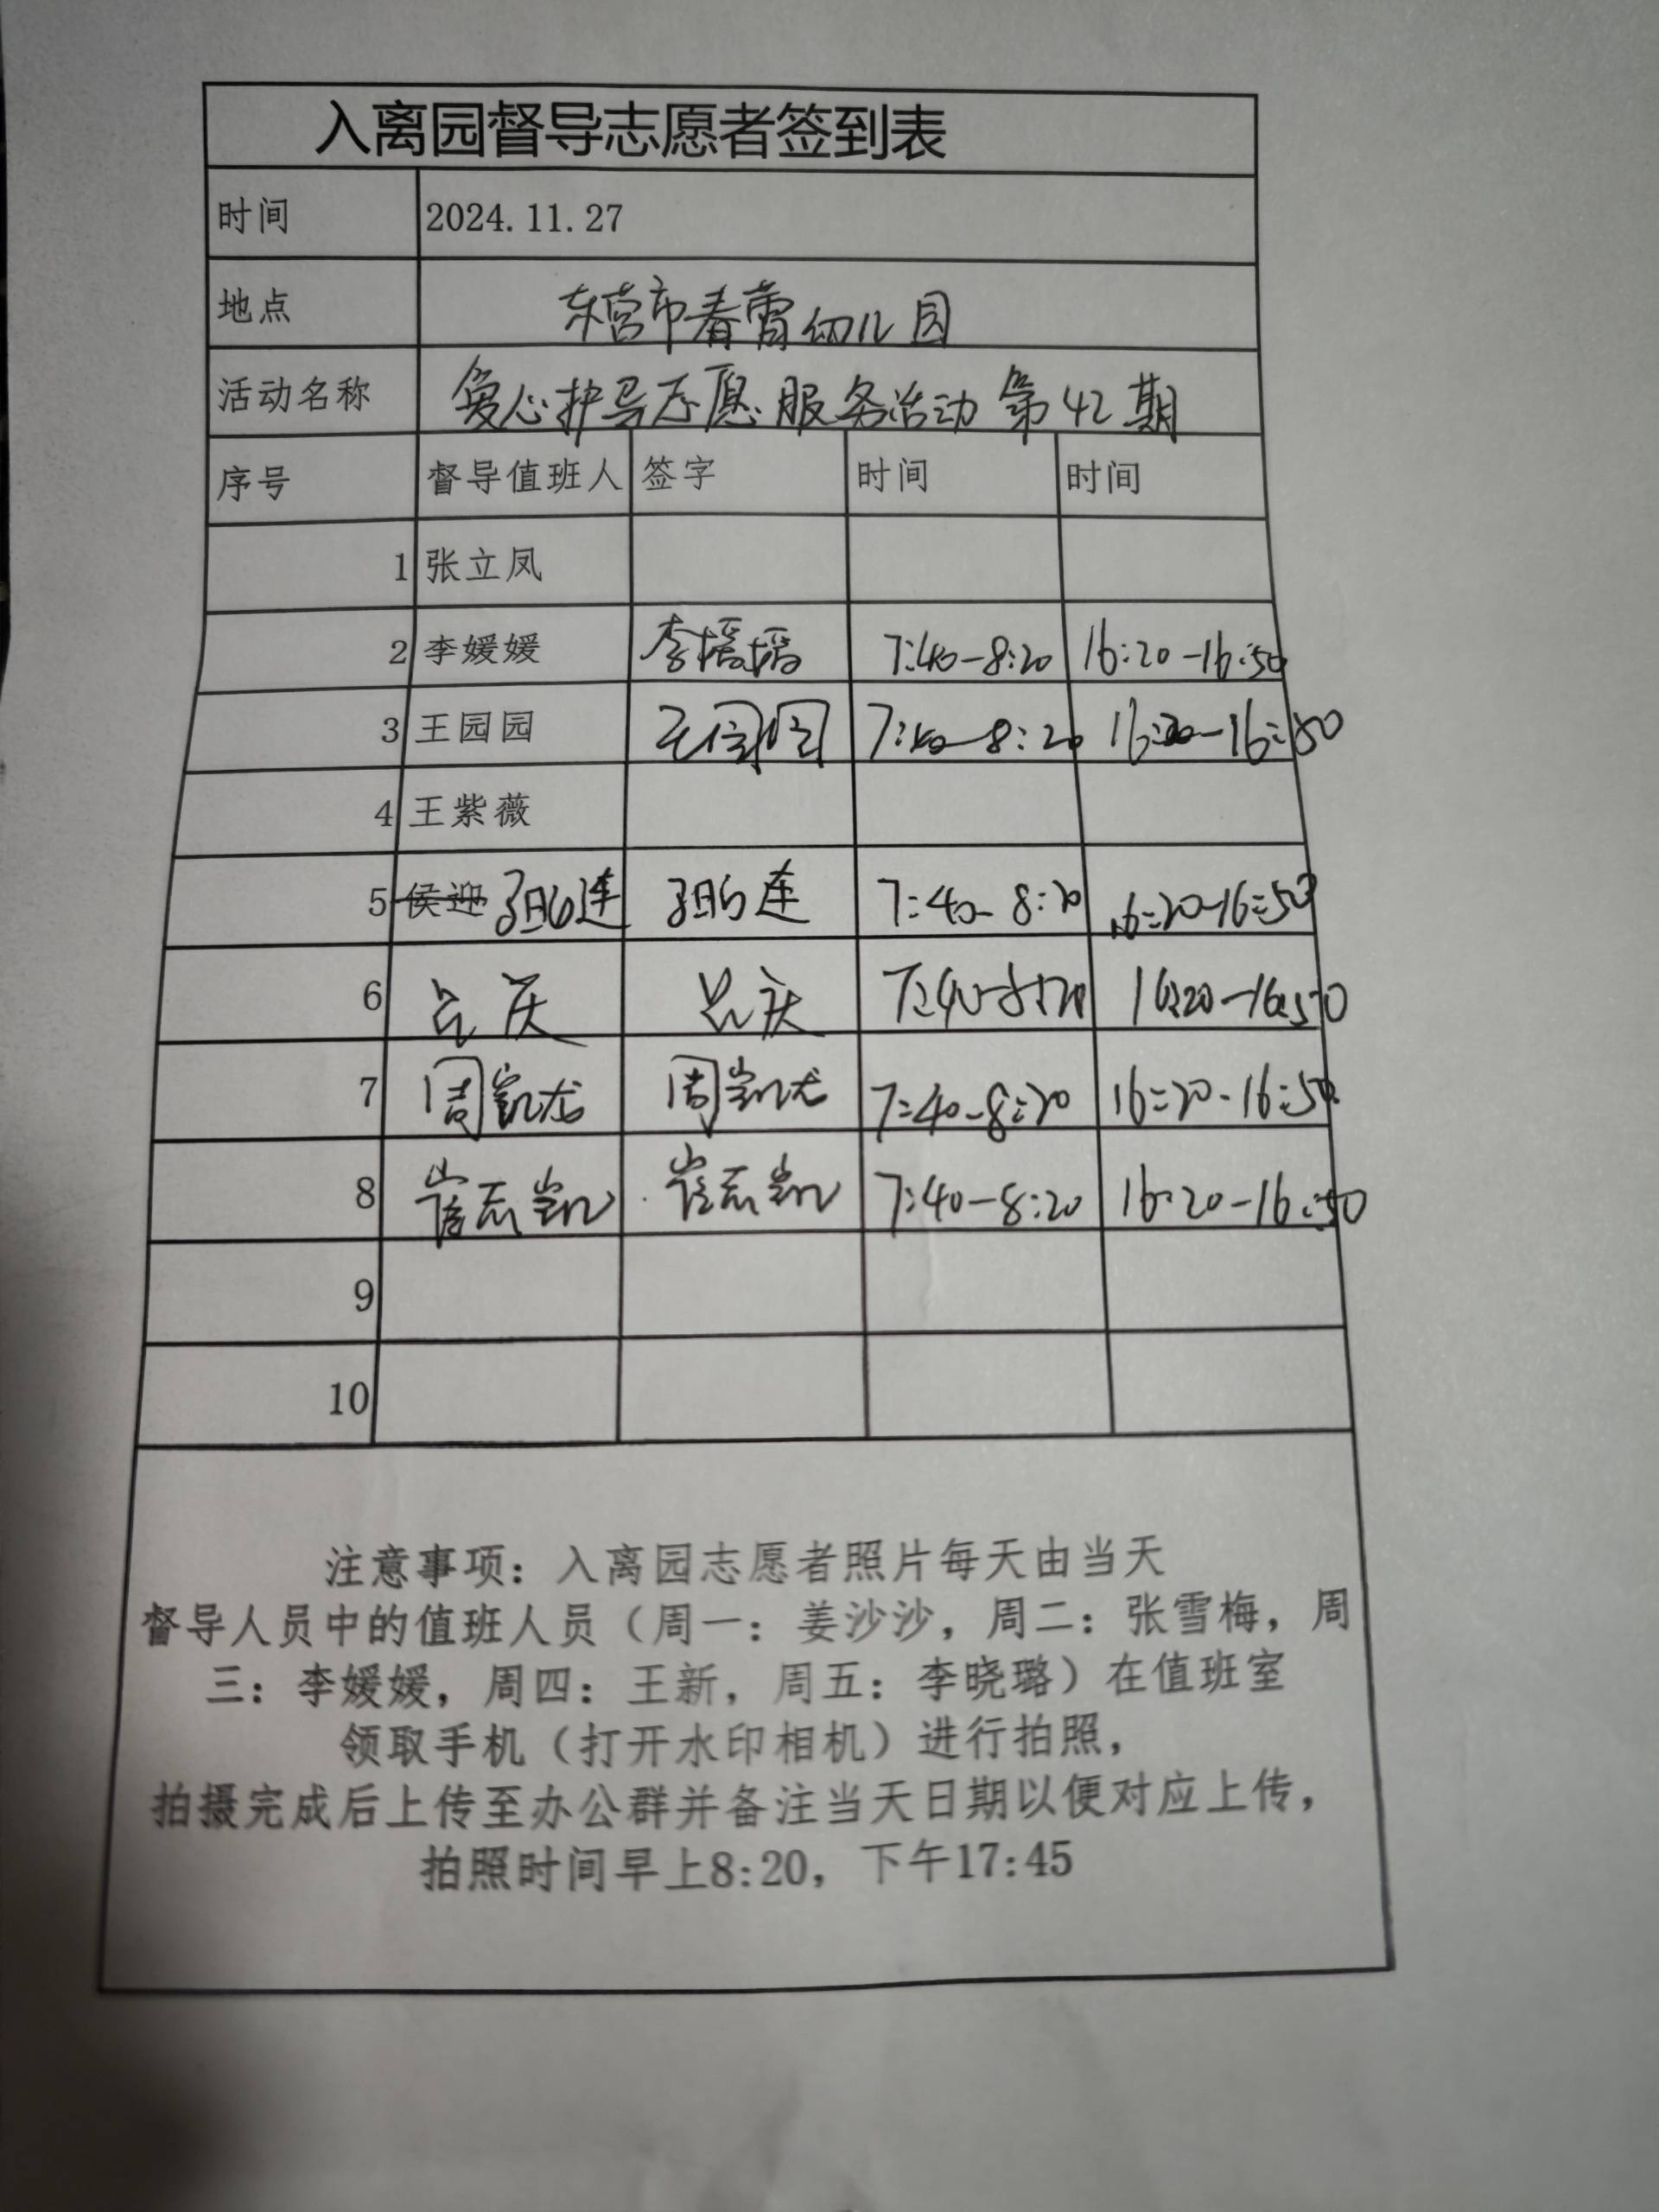 入离园督导志愿者签到表
时间 2024.11.27
地点 东营市春蕾幼儿园
活动名称 爱心护导志愿服务活动第42期
序号 督导值班人 签字 时间 时间
1 张立凤
2 李媛媛 李媛媛 7:40-8:20 16:20-16:50
3 王园园 王园园 7:40-8:20 16:20-16:50
4 王紫薇
5 侯迎 连 连 7:40-8:20 16:20-16:50
6 吕庆 吕庆 7:40-8:20 16:20-16:50
7 周凯龙 周凯龙 7:40-8:20 16:20-16:50
8 崔志凯 崔志凯 7:40-8:20 16:20-16:50
9
10
注意事项：入离园志愿者照片每天由当天
督导人员中的值班人员（周一：姜沙沙，周二：张雪梅，周
三：李媛媛，周四：王新，周五：李晓璐）在值班室
领取手机（打开水印相机）进行拍照，
拍摄完成后上传至办公群并备注当天日期以便对应上传，
拍照时间早上8:20，下午17:45